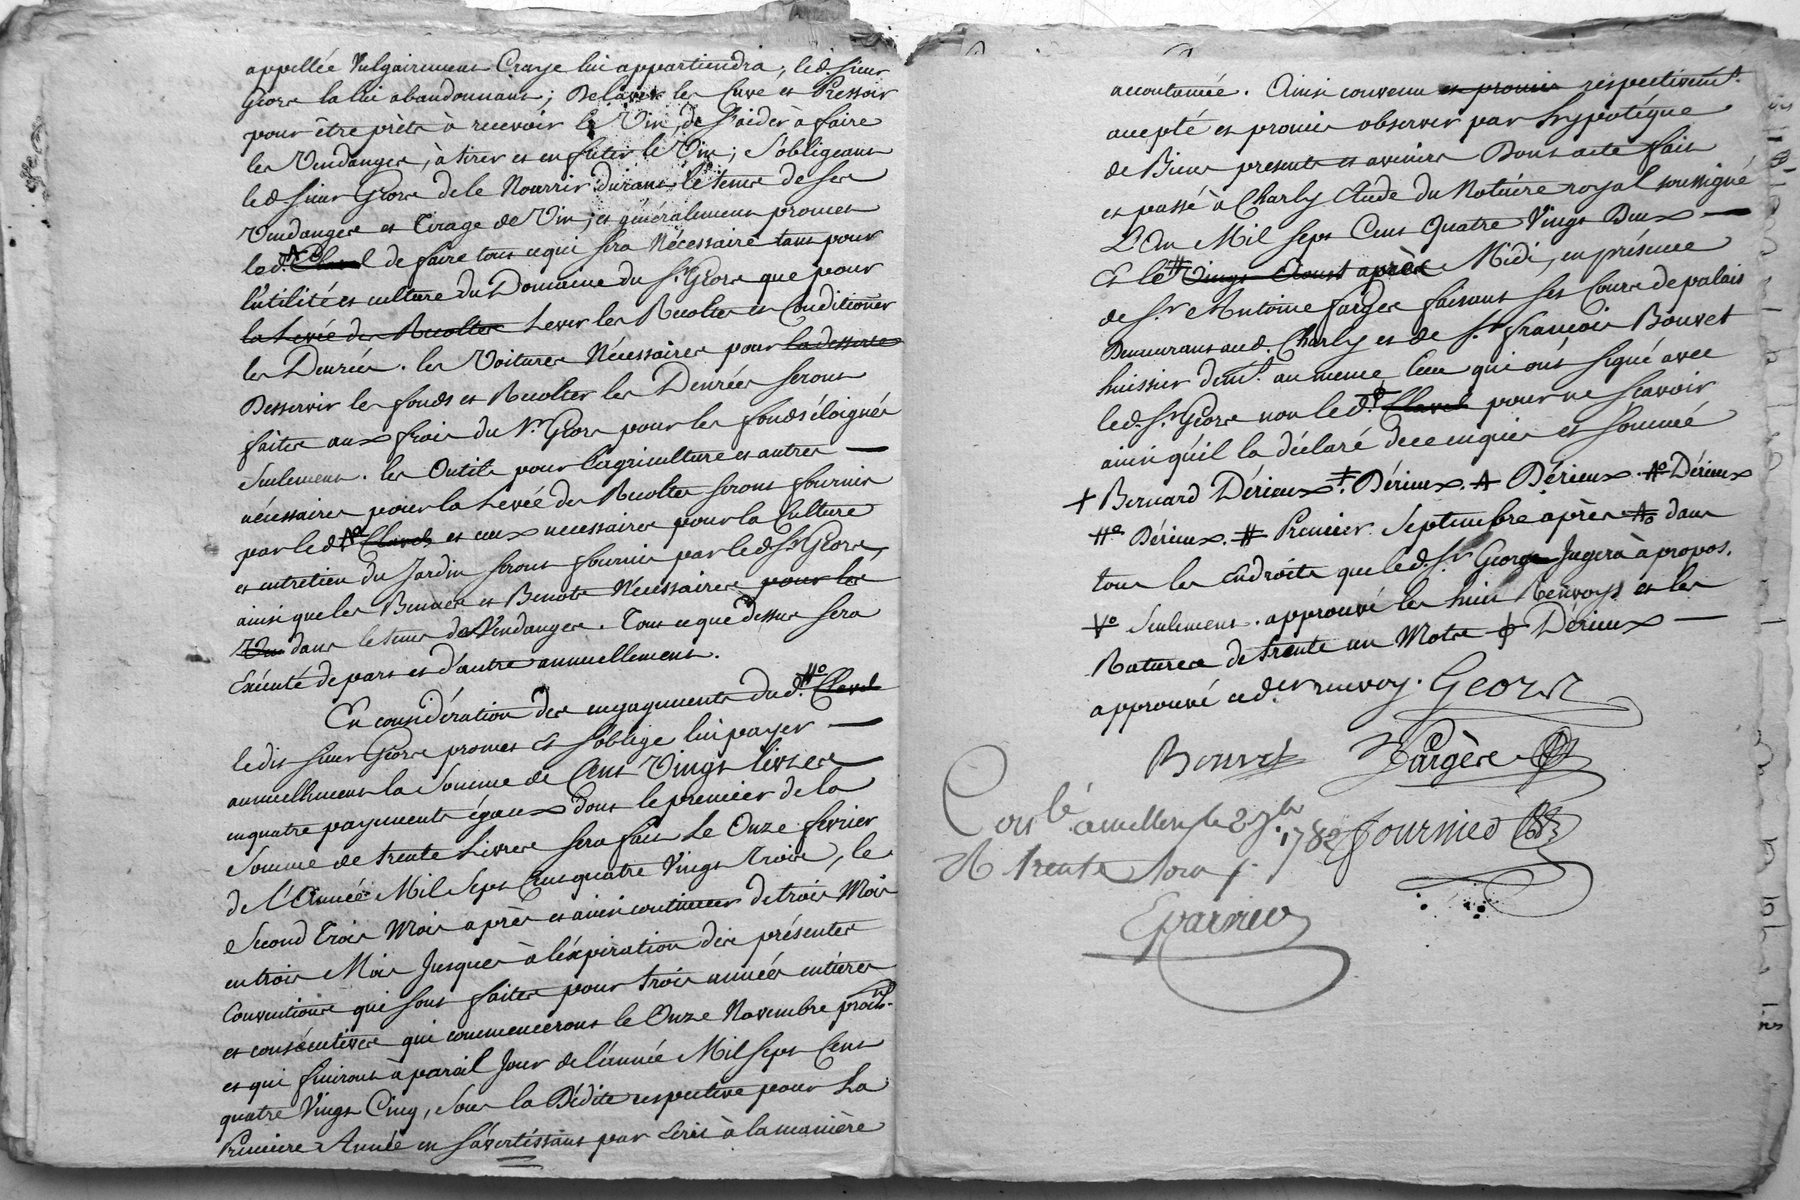 appellée Vulgairement Craye lui appartiendra, led. sieur
Geors la lui abandonnant; De laver les Cuve et Pressoir
pour être prêts à recevoir le Vin, de S'aider à faire
les Vendanges, à tirer et en futer le Vin; S'obligeant
led sieur Geors de le Nourrir durant le tems de ses
Vendanges et Tirage de Vin; et généralement promet
led. Clavel de faire tout ce qui sera Nécessaire tant pour
l'utilité et culture du Domaine du Sr. Geors que pour
la Levée des Recoltes Lever les Recoltes et Conditionner
les Denrées. les Voitures Nécessaires pour la desserte
Desservir les fonds et Recolter les Denrées seront
faites aux frais du Sr. Geors pour les fonds éloignés
Seulement. les Outils pour l'agriculture et autres
nécessaires pour la Levée des Recoltes seront fournis
par led Clavel et ceux necessaires pour la Culture
et entretien du Jardin seront fournis par led. Sr. Geors,
ainsi que les Bennes et Benots Nécessaires pour les
Vin dans le tems des Vendanges. Tout ce que dessus sera
Exécuté de part et d'autre annuellement.
En considération des engagements dud. Hº Clavel
ledit sieur Geors promet et s'oblige lui payer
annuellement la Somme de Cent Vingt livres
en quatre payements égaux dont le premier de la
Somme de trente Livres sera fait Le Onze fevrier
de L'Année Mil Sept Cent quatre Vingt Trois, le
Second Trois Mois après et ainsi continuer de trois Mois
en trois Mois Jusques à l'éxpiration des présentes
Conventions qui sont faites pour trois années entieres
et consécutives qui commenceront le Onze Novembre proch.
et qui finiront à pareil Jour de l'année Mil Sept Cent
quatre Vingt Cinq, Sous la Dédite respective pour La
Premiere Année en s'avertissant par écrit à la manière
accoutumée. Ainsi convenu et promis respectivemt.
accepté et promis observer par hypotéque
de Biens presents et avenirs Dont acte fait
et passé à Charly Etude du Notaire royal soussigné
L'An Mil Sept Cent Quatre Vingt Deux
Et le # Vingt Aoust après Midi, en présence
de Sr. Antoine Farges faisant ses Cours de palais
Demeurant aud. Charly et de Sr. François Bouvet
huissier demt. au meme Lieu qui ont signé avec
led. Sr. Geors non led. Clavel pour ne scavoir
ainsi qu'il la déclaré de ce enquis et sommé
+ Bernard Dérieux ‡. Dérieux. A Dérieux. Aº Dérieux
Hº Dérieux. # Premier Septembre après Aº dans
tous les Endroits que led. Sr. George Jugera à propos.
Vº Seulement. approuvé les huit Renvoys et les
Ratures de trente un Mots ϕ Dérieux
approuvé ced. er renvoy. Geors
Bouvet Fargère
Conlé a millery le 2 7bre 1782 Journied
R trente sous
Eparvier